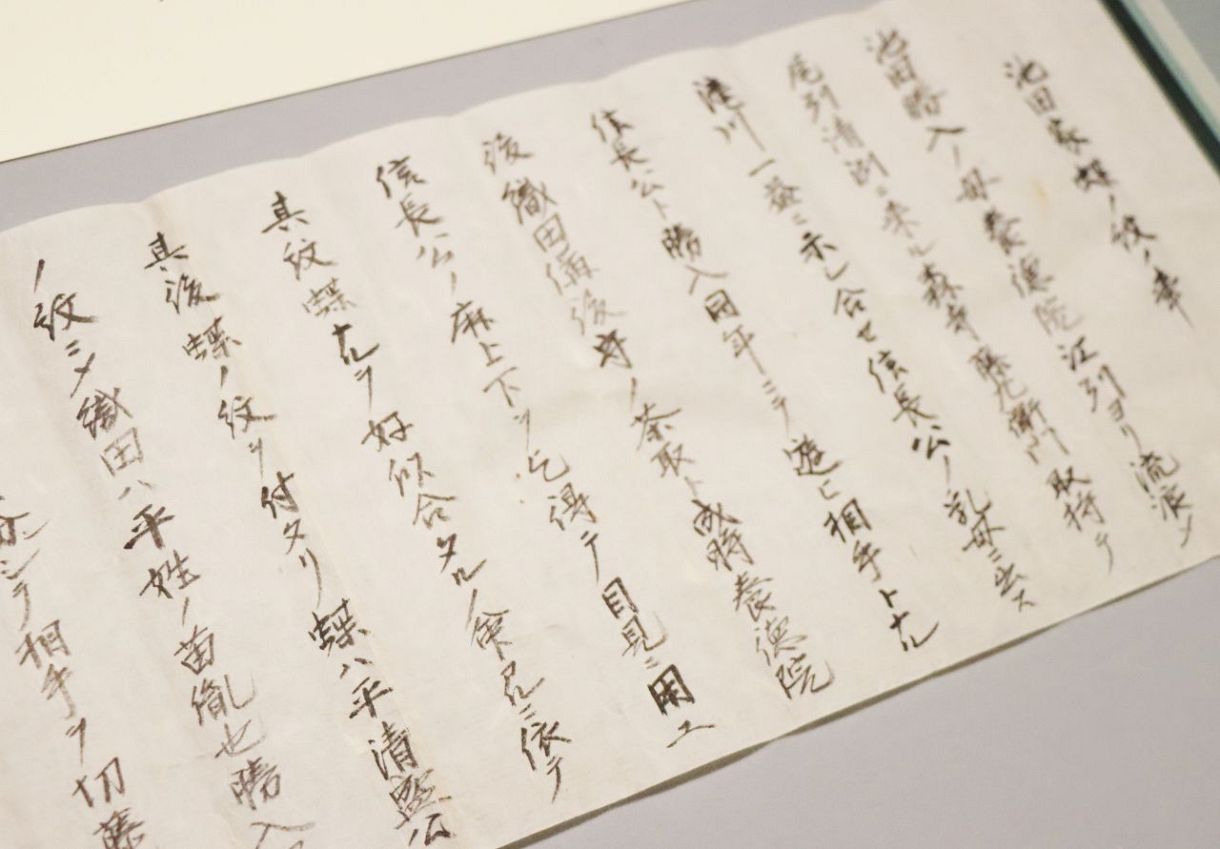 池田家蝶ノ紋ノ事
池田勝入ノ母養徳院江列ヨリ流浪ノ
尾列清洲ニ来ル森寺藤左衛門取持テ
瀧川一益ニ示シ合セ信長公ノ乳母ニ出ス
信長公ト勝入同年ニテ遊ヒ相手トナル
後織田備後守ノ茶取ト成時養徳院
信長公ノ麻上下ヲ乞得テ目見ニ用ユ
其紋蝶ナルヲ好似合タルノ命アルニ依テ
其後蝶ノ紋ヲ付タリ蝶ハ平清盛公
ノ紋ニメ織田ハ平姓ノ苗胤也勝入
相手ヲ切藤